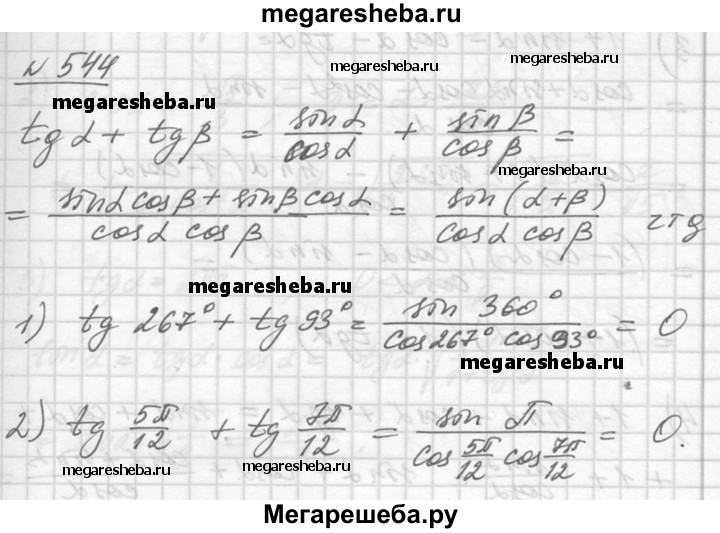 megaresheba.ru
№ 544
megaresheba.ru
megaresheba.ru
megaresheba.ru
tg α + tg β = sin α / cos α + sin β / cos β =
megaresheba.ru
= (sin α cos β + sin β cos α) / (cos α cos β) = sin (α + β) / (cos α cos β) чтд
megaresheba.ru
1) tg 267° + tg 93° = sin 360° / (cos 267° cos 93°) = 0
megaresheba.ru
2) tg 5π/12 + tg 7π/12 = sin π / (cos 5π/12 cos 7π/12) = 0.
megaresheba.ru
megaresheba.ru
megaresheba.ru
Мегарешеба.ру